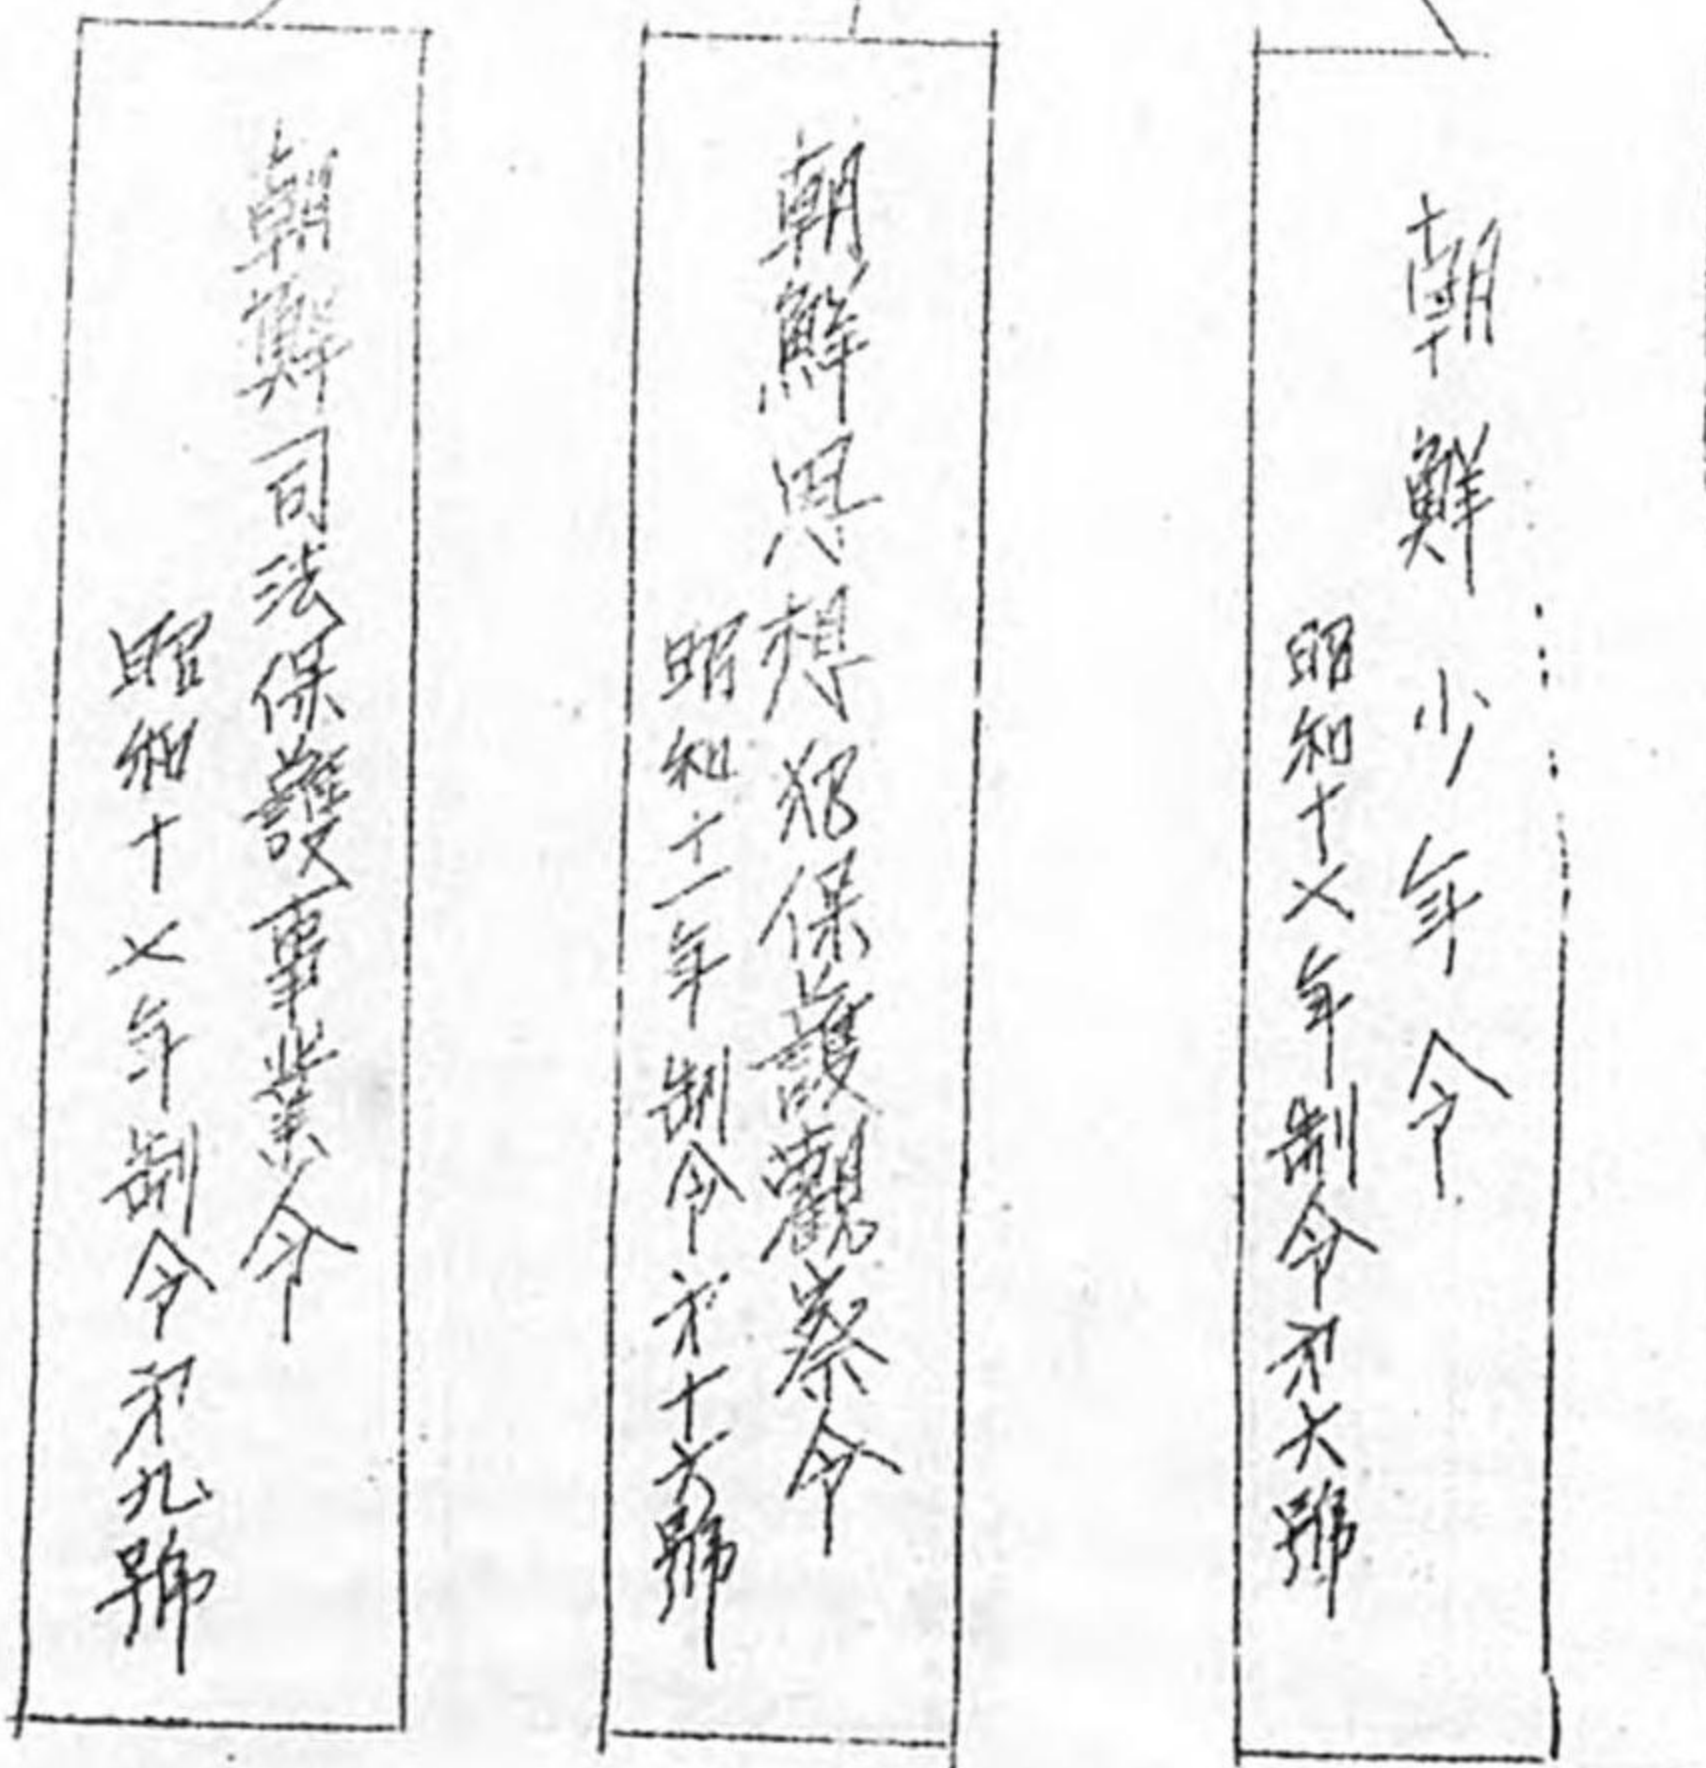 朝鮮少年令
昭和十七年制令第六號
朝鮮思想犯保護觀察令
昭和十一年制令第十六號
朝鮮司法保護事業令
昭和十七年制令第九號